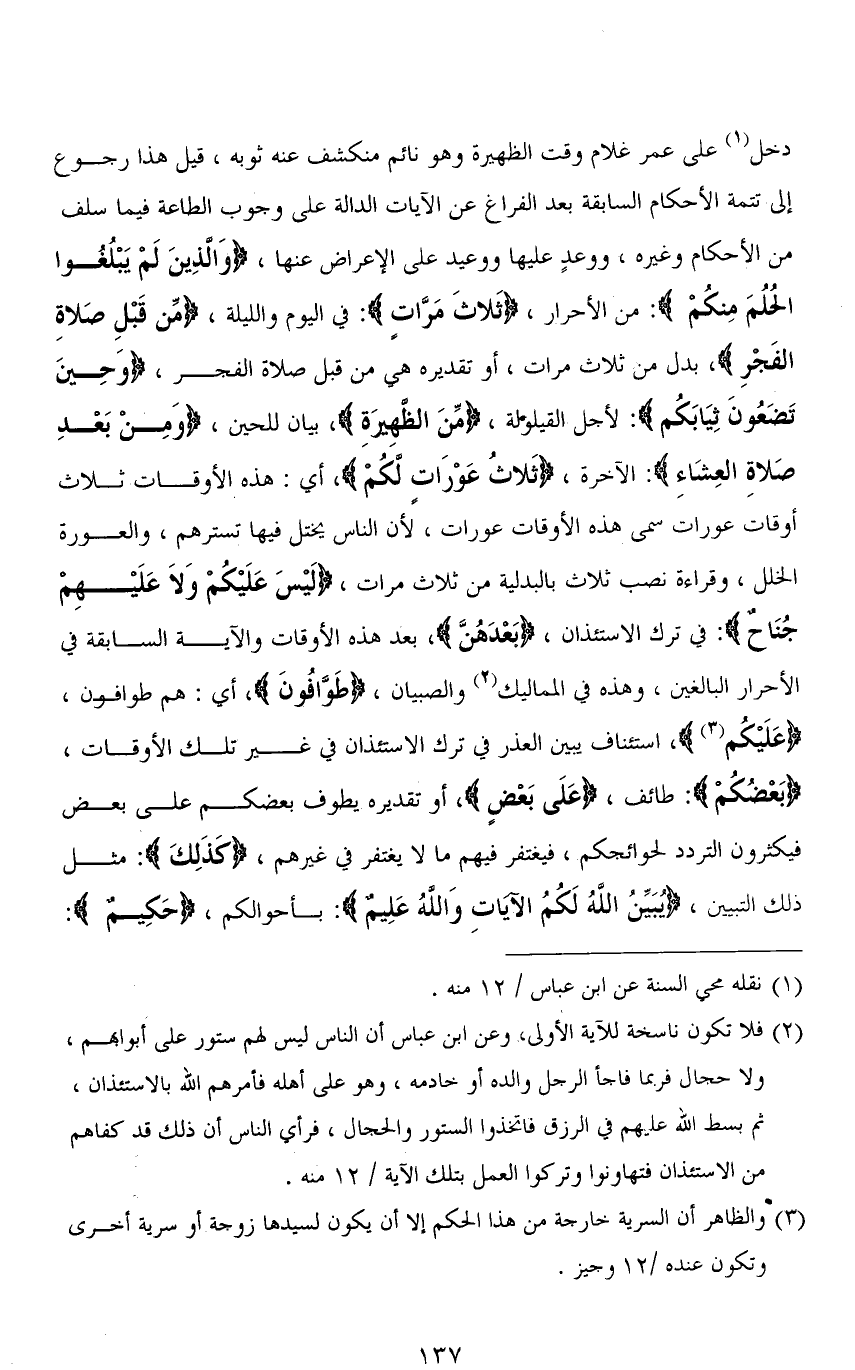 دخل(١) على عمر غلام وقت الظهيرة وهو نائم منكشف عنه ثوبه ، قيل هذا رجـــوع
إلى تتمة الأحكام السابقة بعد الفراغ عن الآيات الدالة على وجوب الطاعة فيما سلف
من الأحكام وغيره ، ووعدٍ عليها ووعيد على الإعراض عنها ، ﴿وَالَّذِينَ لَمْ يَبْلُغُـــوا
الحُلُمَ مِنكُمْ ﴾: من الأحرار ، ﴿ثَلاثَ مَرَّاتٍ ﴾: في اليوم والليلة ، ﴿مِّن قَبْلِ صَلاةِ
الفَجْرِ ﴾، بدل من ثلاث مرات ، أو تقديره هي من قبل صلاة الفجـــر ، ﴿وَحِـــينَ
تَضَعُونَ ثِيَابَكُم ﴾: لأجل القيلولة ، ﴿مِّنَ الظَّهِيرَةِ ﴾، بيان للحين ، ﴿وَمِـــنْ بَعْـــدِ
صَلاةِ العِشَاءِ ﴾: الآخرة ، ﴿ثَلاثُ عَوْرَاتٍ لَّكُمْ ﴾، أي : هذه الأوقـــات ثـــلاث
أوقات عورات سمى هذه الأوقات عورات ، لأن الناس يختل فيها تسترهم ، والعـــورة
الخلل ، وقراءة نصب ثلاث بالبدلية من ثلاث مرات ، ﴿لَيْسَ عَلَيْكُمْ وَلاَ عَلَيْـــهِمْ
جُنَاحٌ ﴾: في ترك الاستئذان ، ﴿بَعْدَهُنَّ ﴾، بعد هذه الأوقات والآيـــة الســـابقة في
الأحرار البالغين ، وهذه في المماليك(٢) والصبيان ، ﴿طَوَّافُونَ ﴾، أي : هم طوافـون ،
﴿عَلَيْكُم(٣) ﴾، استئناف يبين العذر في ترك الاستئذان في غـــير تلـــك الأوقـــات ،
﴿بَعْضُكُمْ ﴾: طائف ، ﴿عَلَى بَعْضٍ ﴾، أو تقديره يطوف بعضكـــم علـــى بعـــض
فيكثرون التردد لحوائجكم ، فيغتفر فيهم ما لا يغتفر في غيرهم ، ﴿كَذَلِكَ ﴾: مثـــل
ذلك التبيين ، ﴿يُبَيِّنُ اللَّهُ لَكُمُ الآيَاتِ وَاللَّهُ عَلِيمٌ ﴾: بـــأحوالكم ، ﴿حَكِيـــمٌ ﴾:
(١) نقله محي السنة عن ابن عباس / ١٢ منه .
(٢) فلا تكون ناسخة للآية الأولى، وعن ابن عباس أن الناس ليس لهم ستور على أبوابهـــم ،
ولا حجال فربما فاجأ الرجل والده أو خادمه ، وهو على أهله فأمرهم الله بالاستئذان ،
ثم بسط الله عليهم في الرزق فاتخذوا الستور والحجال ، فرأي الناس أن ذلك قد كفاهم
من الاستئذان فتهاونوا وتركوا العمل بتلك الآية / ١٢ منه .
(٣) والظاهر أن السرية خارجة من هذا الحكم إلا أن يكون لسيدها زوجة أو سرية أخـــرى
وتكون عنده /١٢ وجيز .
١٣٧